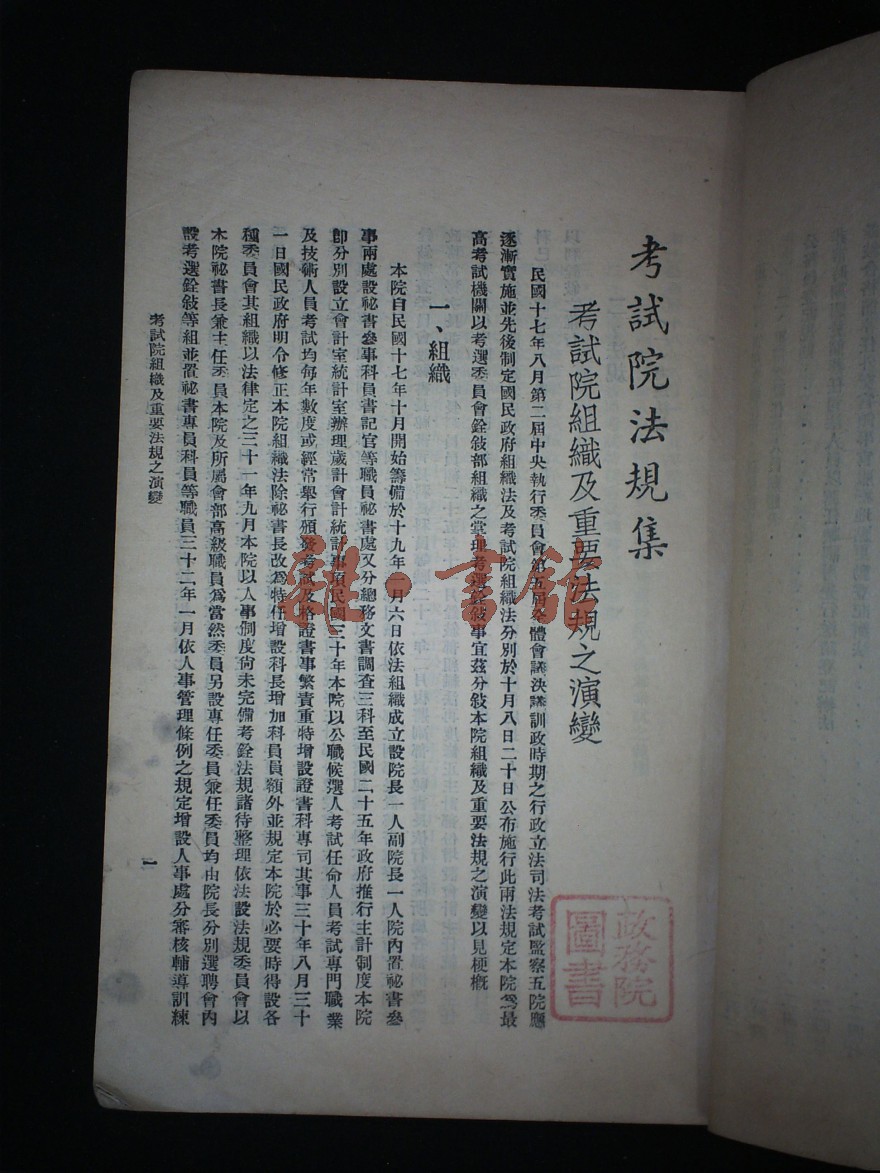 考試院法規集
考試院組織及重要法規之演變
民國十七年八月第二屆中央執行委員會第五屆全體會議決議訓政時期之行政立法司法考試監察五院應
逐漸實施並先後制定國民政府組織法及考試院組織法分別於十月八日二十日公布施行此兩法規定本院為最
高考試機關以考選委員會銓敍部組織之掌理考選銓敍事宜茲分敍本院組織及重要法規之演變以見梗概
一、組織
本院自民國十七年十月開始籌備於十九年一月六日依法組織成立設院長一人副院長一人院內置祕書參
事兩處設祕書參事科員書記官等職員祕書處又分總務文書調查三科至民國二十五年政府推行主計制度本院
卽分別設立會計室統計室辦理歲計會計統計事項民國三十年本院以公職候選人考試任命人員考試專門職業
及技術人員考試均每年數度或經常舉行頒發考試及格證書事繁責重特增設證書科專司其事三十年八月三十
一日國民政府明令修正本院組織法除祕書長改為特任增設科長增加科員員額外並規定本院於必要時得設各
種委員會其組織以法律定之三十一年九月本院以人事制度尙未完備考銓法規諸待整理依法設法規委員會以
本院祕書長兼主任委員本院及所屬會部高級職員為當然委員另設專任委員兼任委員均由院長分別選聘會內
設考選銓敍等組並置祕書專員科員等職員三十二年一月依人事管理條例之規定增設人事處分審核輔導訓練
考試院組織及重要法規之演變
一
政務院
圖書
雜·書館